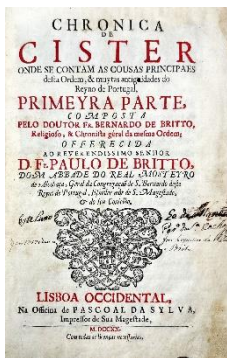 CHRONICA
DE
CISTER
ONDE SE CONTAM AS COUSAS PRINCIPAES
desta Ordem, & muytas antiguidades do
Reyno de Portugal,
PRIMEYRA PARTE,
COMPOSTA
PELO DOUTOR Fr. BERNARDO DE BRITTO,
Religioso, & Chronista géral da mesma Ordem;
OFFERECIDA
AO REVERENDISSIMO SENHOR
D. Fr. PAULO DE BRITTO,
DOM ABBADE DO REAL MOSTEYRO
de Alcobaça, Géral da Congregaçaõ de S. Bernardo deste
Reyno de Portugal, Esmoler môr de S. Magestade,
& do seu Conselho,
LISBOA OCCIDENTAL,
Na Officina de PASCOAL DA SYLVA,
Impressor de Sua Magestade,
M. DCCXX.
Com todas as licenças necessarias.